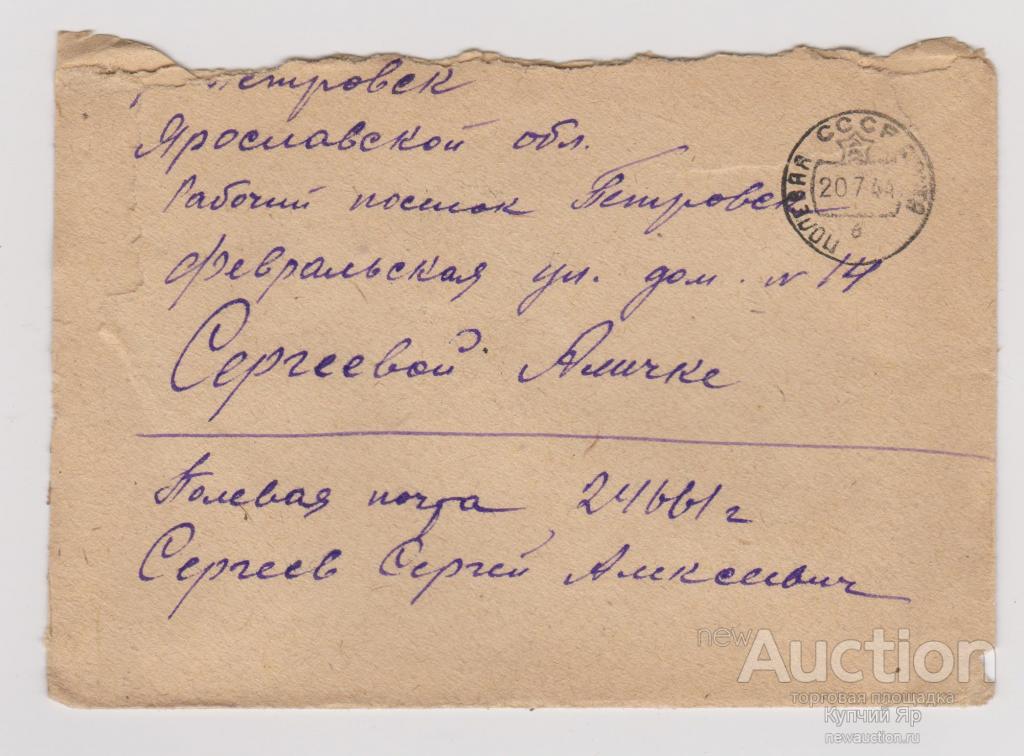 Петровск
Ярославской обл.
Рабочий поселок Петровск
февральская ул. дом. N 14
Сергеевой Аличке
Полевая почта 24661 г
Сергеев Сергей Алексеевич
СССР
ПОЛЕВАЯ
20 7 44
в
newAuction
торговая площадка
Купчий Яр
newauction.ru